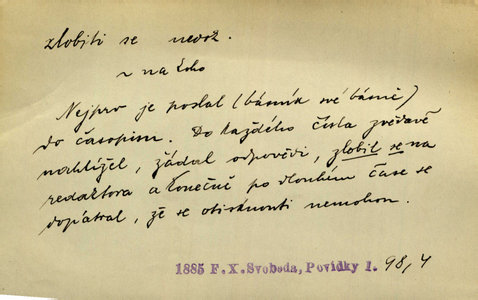 zlobiti se nedok.
~ na koho
Nejprv je poslal (básník své básně)
do časopisu. Do každého čísla zvědavě
nahlížel, žádal odpovědi, zlobil se na
redaktora a konečně po dlouhém čase se
dopátral, že se otisknouti nemohou.
1885 F.X.Svoboda, Povídky 1. 98,4